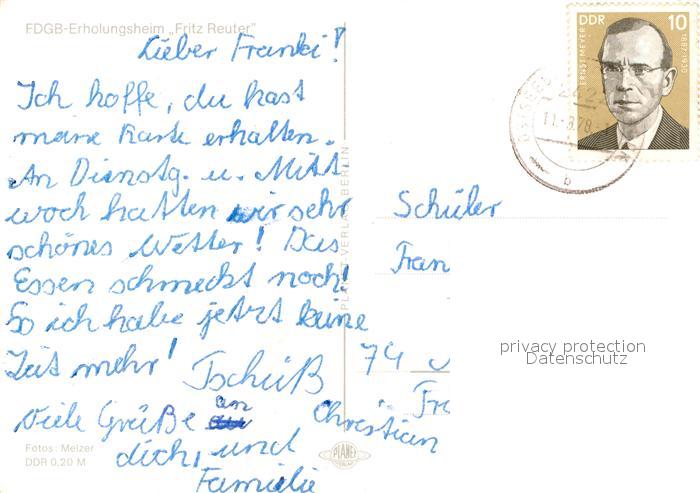 FDGB-Erholungsheim „Fritz Reuter"
Lieber Franki!
Ich hoffe, du hast
meine Karte erhalten.
An Dienstg. u. Mitt
woch hatten wir sehr
schönes Wetter! Das
Essen schmeckt noch!
So ich habe jetzt keine
Zeit mehr! Tschüß
Viele Grüße an
Christian
dich, und
Familie
Fotos: Melzer
DDR 0,20 M
PLANET-VERLAG BERLIN
PLANET
VERLAG
DDR 10
ERNST MEYER 1887/1930
2422
11.-8.78
b
Schüler
Fran
74
Fr
privacy protection
Datenschutz